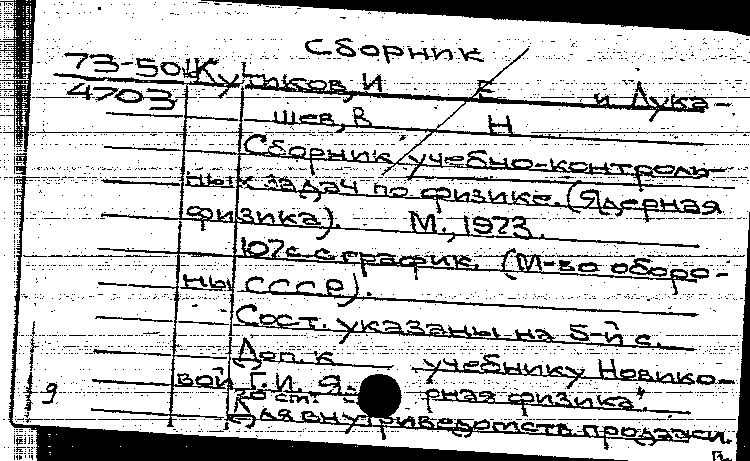 Сборник
73-50 Кутиков, И Е и Лука-
4703
шев, В Н
Сборник учебно-контроль-
ных задач по физике. (Ядерная
физика). М., 1973.
107с. с график. (М-во оборо-
ны СССР).
Сост. указаны на 5-й с.
Доп. к учебнику Новико-
вой Г.И. Я рная физика".
9
Для внутриведомств. продажи.